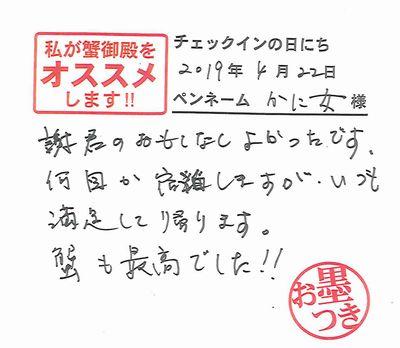 私が蟹御殿を
オススメ
します!!
チェックインの日にち
2019年4月22日
ペンネーム かに女 様
謝君のおもてなしよかったです。
何回か宿泊しますが、いつも
満足して帰ります。
蟹も最高でした!!
お墨つき